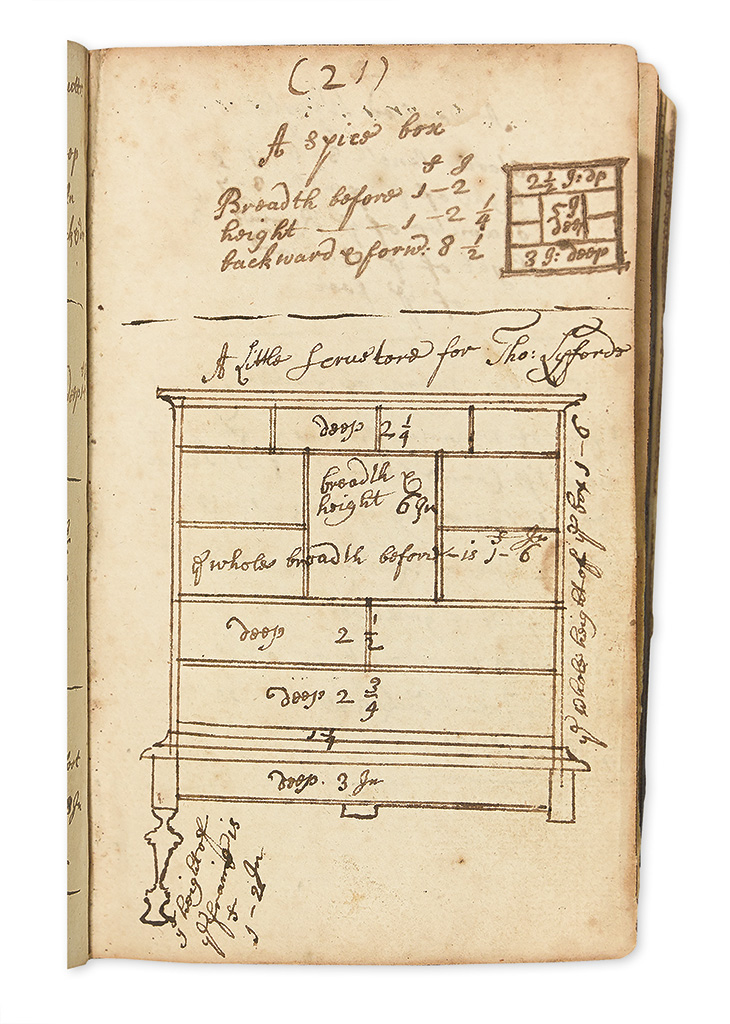 (21)
A spice box
f J
Breadth before 1-2
height — — 1-2 1/4
backward & forw: 8 1/2
2 1/2 J: dp
5 J
deep
3 J: deep
A Little scrustore for Tho: Lyfords
deep 2 1/4
breadth &
height 6 Jn
f Jn
ye whole breadth before is 1-6
deep 2 1/2
deep 2 3/4
1 1/4
deep. 3 Jn
ye whole height of ye box 1-6
ye height of
ye frame is
f
1-2 Jn